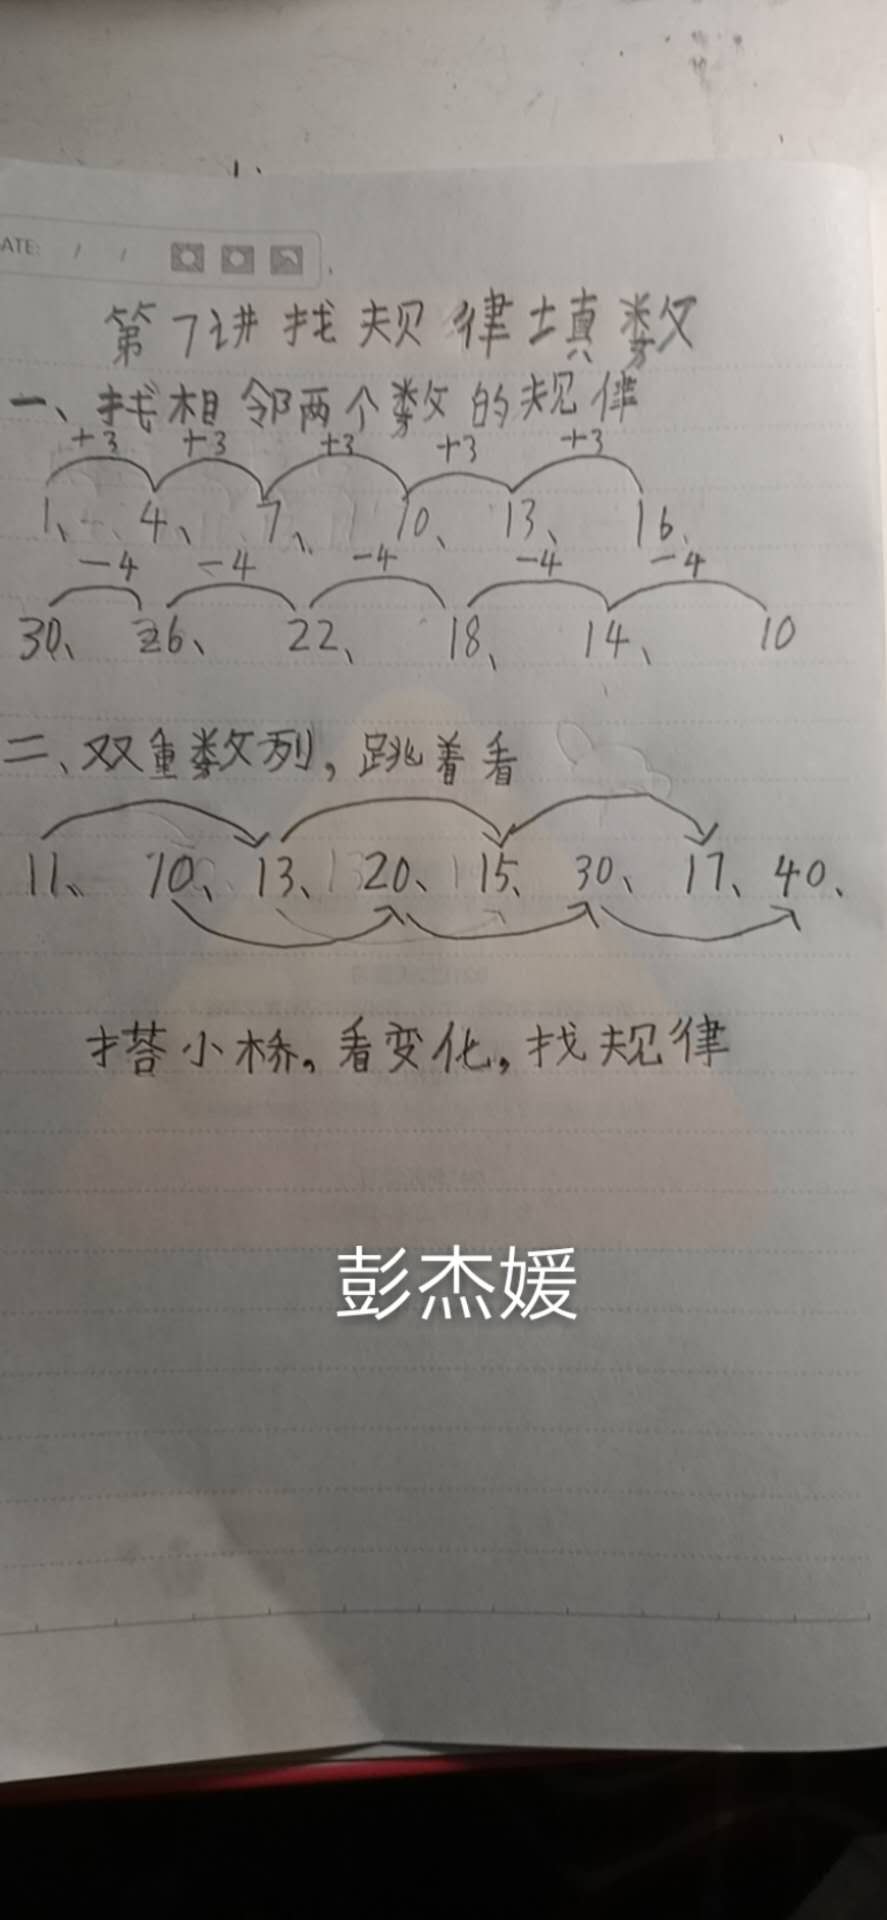 ATE: / /
第7讲 找规律填数
一、找相邻两个数的规律
+3 +3 +3 +3 +3
1、4、7、10、13、16、
-4 -4 -4 -4 -4
30、26、22、18、14、10
二、双重数列，跳着看
11、10、13、20、15、30、17、40、
搭小桥。看变化，找规律
彭杰媛